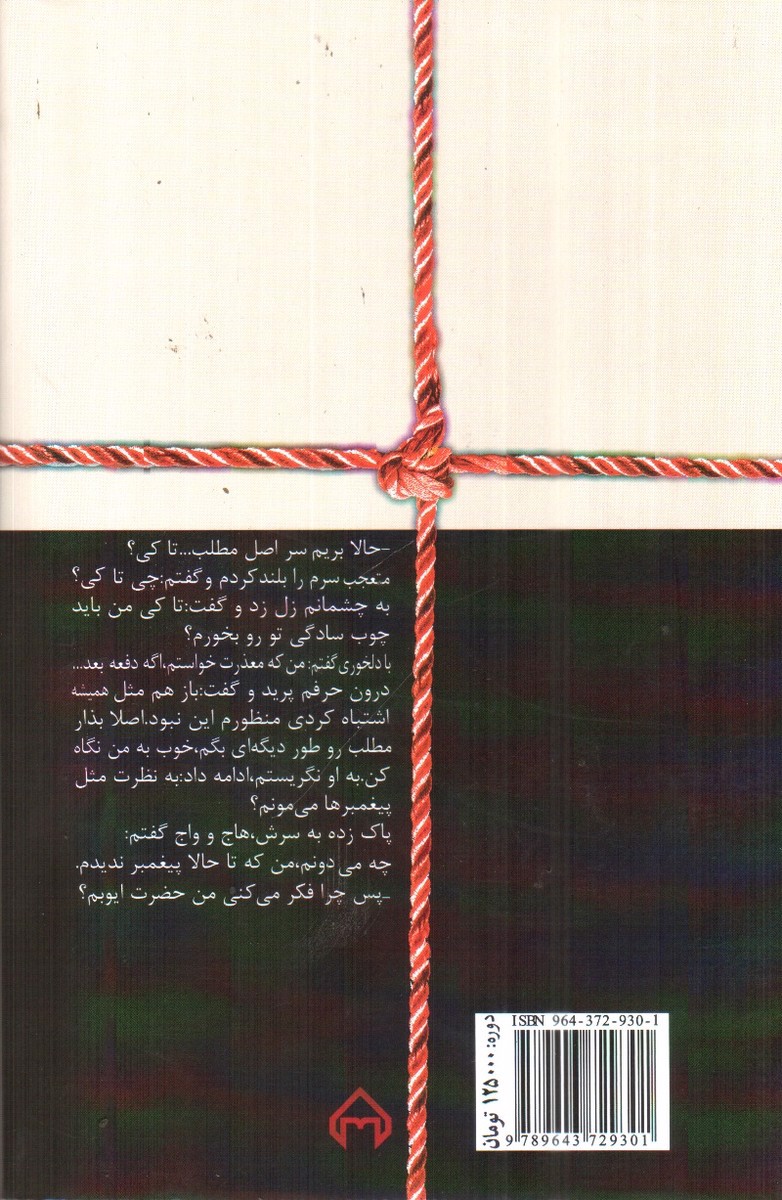 -حالا بریم سر اصل مطلب...تا کی؟
متعجب سرم را بلند کردم و گفتم:چی تا کی؟
به چشمانم زل زد و گفت:تا کی من باید
چوب سادگی تو رو بخورم؟
با دلخوری گفتم:من که معذرت خواستم،اگه دفعه بعد...
درون حرفم پرید و گفت:باز هم مثل همیشه
اشتباه کردی منظورم این نبود.اصلا بذار
مطلب رو طور دیگه‌ای بگم،خوب به من نگاه
کن.به او نگریستم،ادامه داد:به نظرت مثل
پیغمبرها می‌مونم؟
پاک زده به سرش،هاج و واج گفتم:
چه می‌دونم،من که تا حالا پیغمبر ندیدم.
_پس چرا فکر می‌کنی من حضرت ایوبم؟
ISBN 964-372-930-1
9 789643 729301
دوره: ۱۲۵۰۰۰ تومان